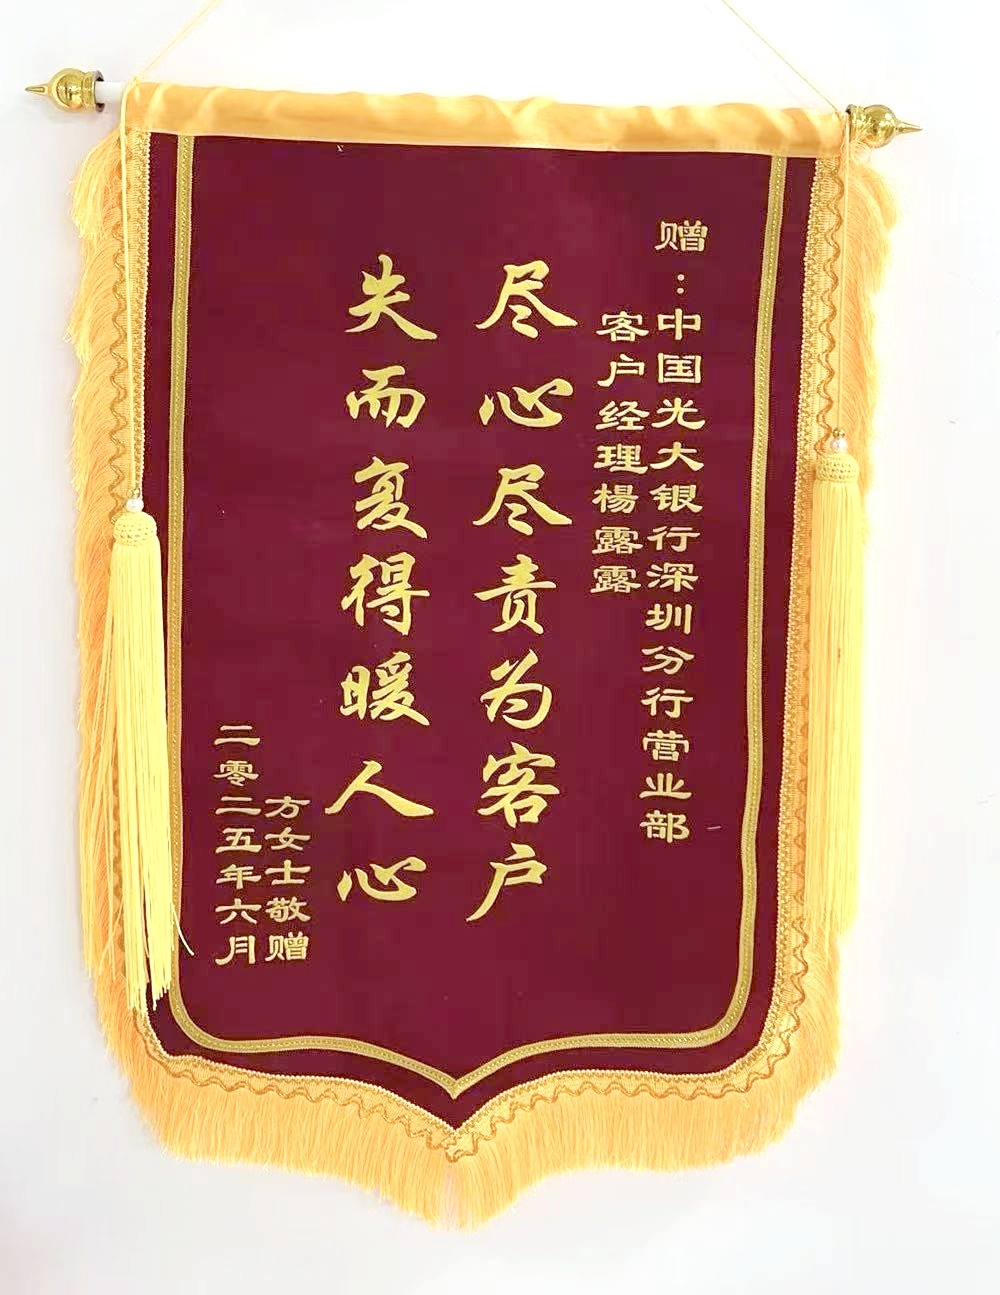 赠：中国光大银行深圳分行营业部
客户经理楊露露
尽心尽责为客户
失而复得暖人心
方女士敬赠
二零二五年六月